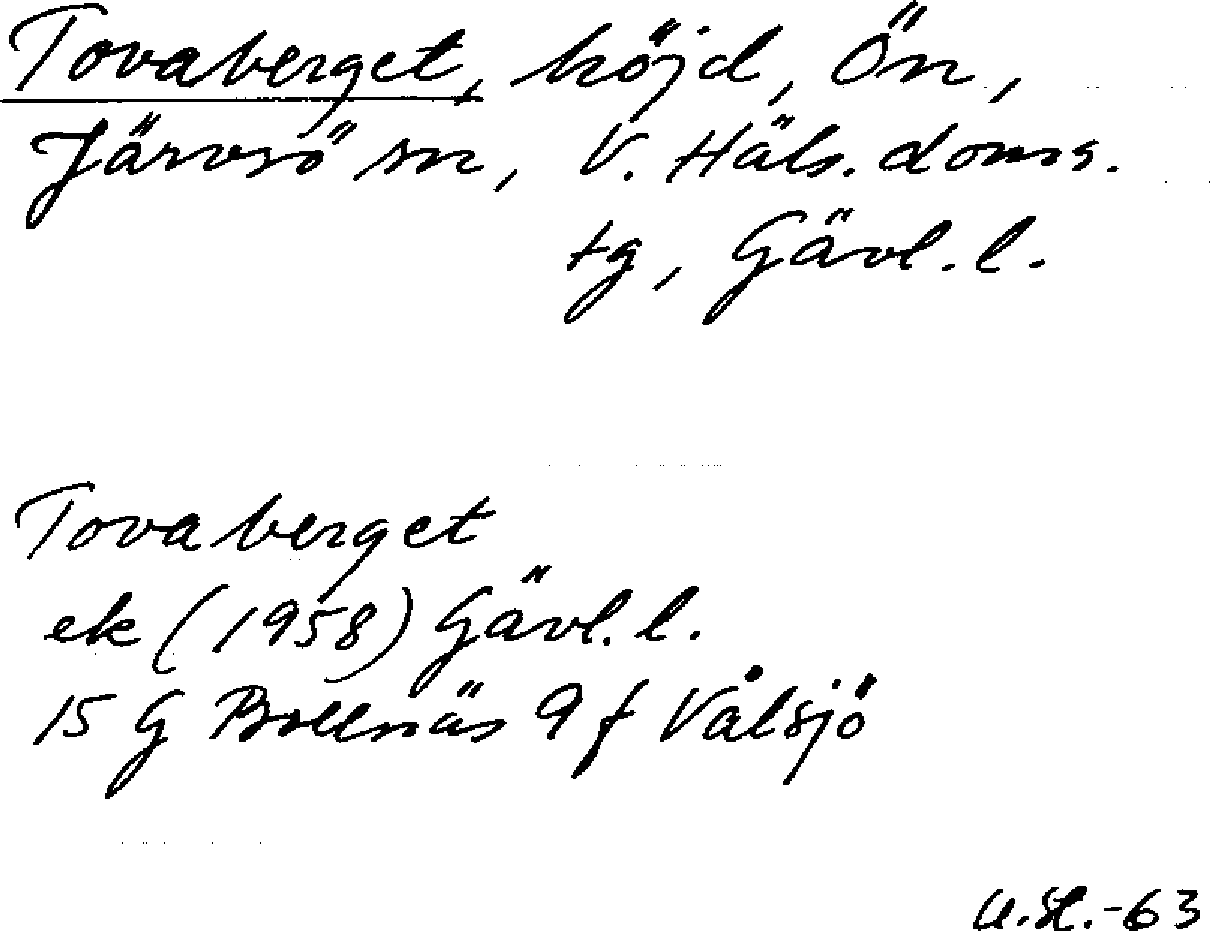 Tovaberget, höjd, Ön,
Järvsö sn, V. Häls. doms.
tg, Gävl. l.
Tovaberget
ek (1958) Gävl. l.
15 G Bollnäs 9 f Vålsjö
-63